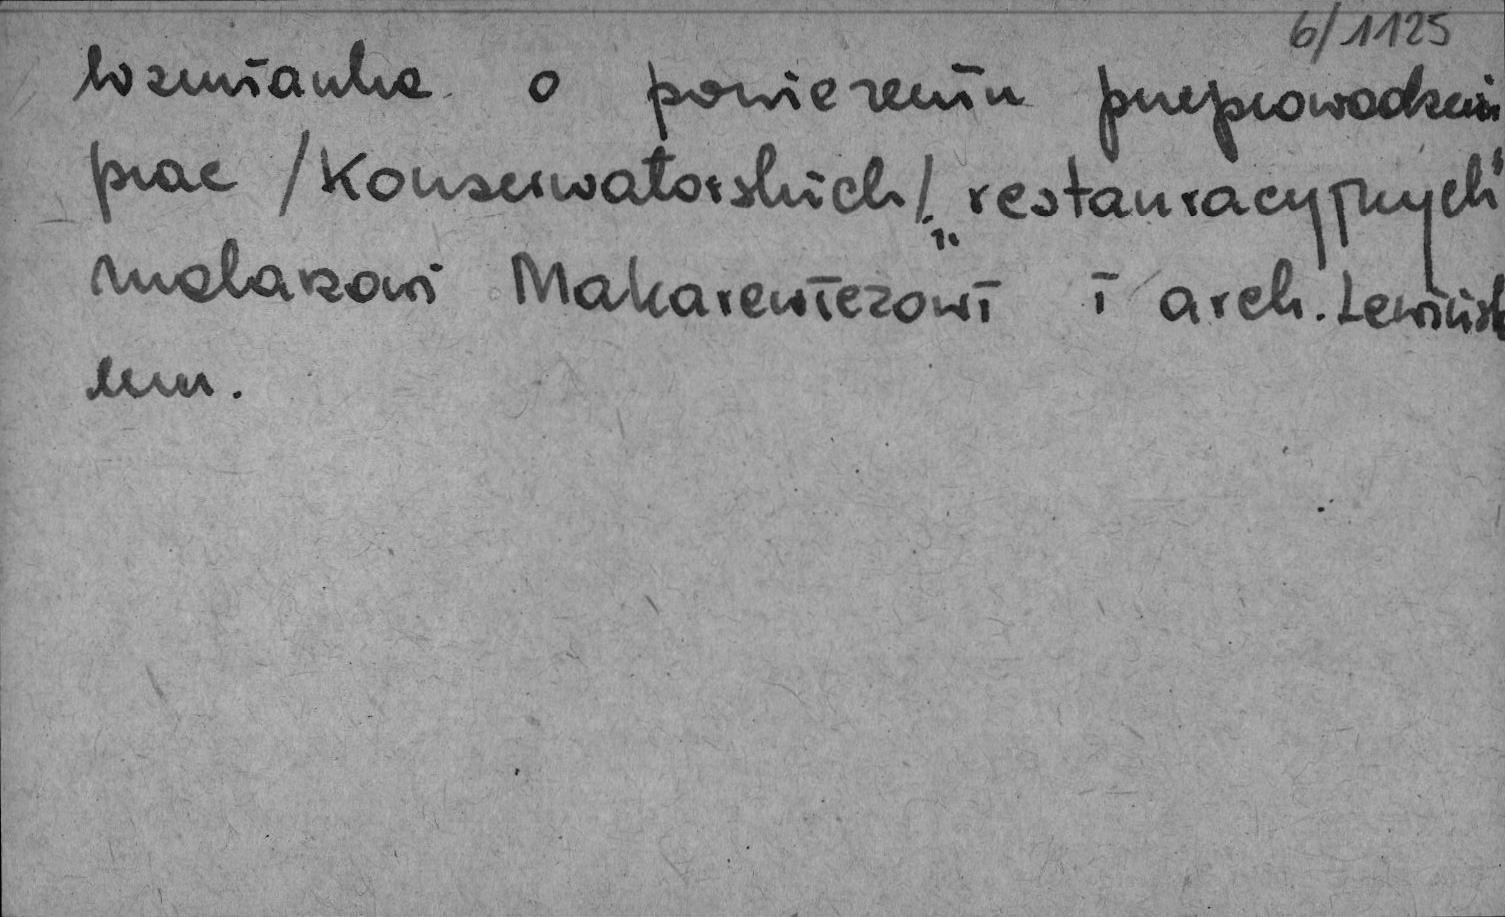 6/1125
Wzmianka o powierzeniu przeprowadzeni
prac /Konserwatorskich/ „restauracyjnych"
malarzowi Makarewiczowi i arch. Lewińsk
iemu.